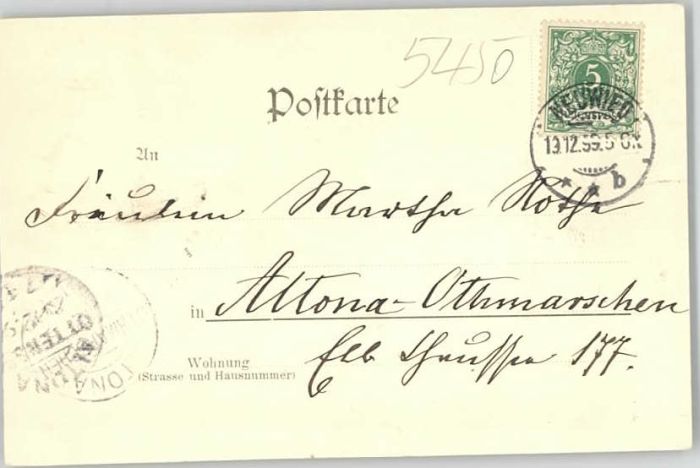 5450
Postkarte
5
NEUWIED
13.12.99.5
* * b
An
Fräulein Martha Rothe
in Altona-Othmarschen
Wohnung
(Strasse und Hausnummer)
Elb Chaussee 177.
ALTONA
OTTENS